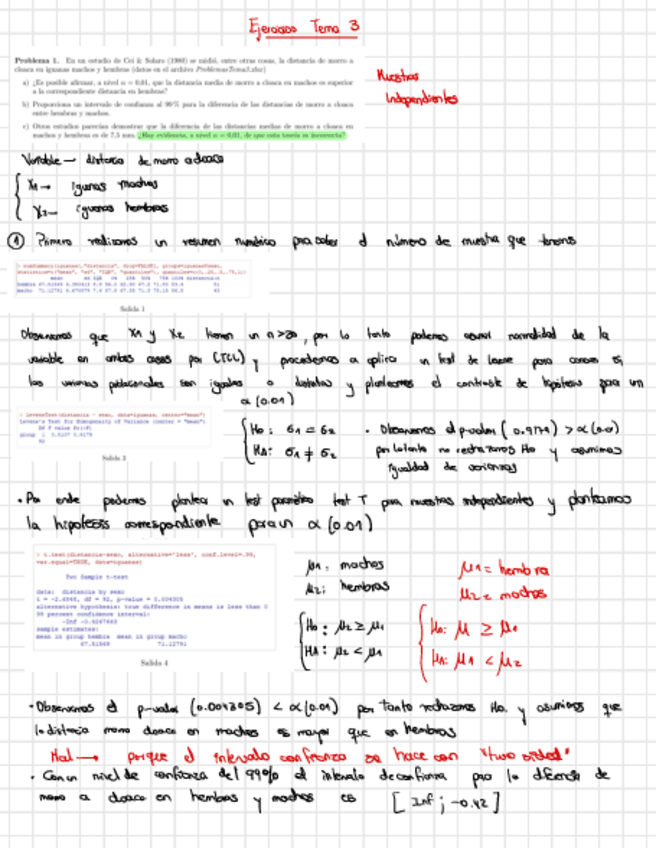 Ejercicios Tema 3
Problema 1. En un estudio de Cei & Solaro (1980) se midió, entre otras cosas, la distancia de morro a
cloaca en iguanas machos y hembras (datos en el archivo ProblemasTema3.xlsx)
a) ¿Es posible afirmar, a nivel α = 0,01, que la distancia media de morro a cloaca en machos es superior
a la correspondiente distancia en hembras?
b) Proporciona un intervalo de confianza al 99 % para la diferencia de las distancias de morro a cloaca
entre hembras y machos.
c) Otros estudios parecían demostrar que la diferencia de las distancias medias de morro a cloaca en
machos y hembras es de 7,5 mm. ¿Hay evidencia, a nivel α = 0,01, de que esta teoría es incorrecta?
Muestras
Independientes
Variable → distancia de morro a cloaca
X1 → iguanas machos
X2 → iguanas hembras
① Primero realizamos un resumen numérico para saber el número de muestra que tenemos
Salida 1
Observamos que X1 y X2 tienen un n>30, por lo tanto podemos asumir normalidad de la
variable en ambos casos por (TCL) y procedemos a aplicar un test de levene para conocer si
las varianzas poblacionales son iguales o distintas y planteamos el contraste de hipótesis para un
α (0.01)
Levene's Test for Homogeneity of Variance (center = "mean")
Df F value Pr(>F)
group 1 0.0107 0.9179
92
H0: σ1 = σ2
HA: σ1 ≠ σ2
• Observamos el p-valor (0.9179) > α (0.01)
por lo tanto no rechazamos H0 y asumimos
igualdad de varianzas
• Por ende podemos plantear un test paramétrico test T para muestras independientes y planteamos
la hipótesis correspondiente para un α (0.01)
> t.test(distancia~sexo, alternative='less', conf.level=.99,
var.equal=TRUE, data=iguanas)
Two Sample t-test
data: distancia by sexo
alternative hypothesis: true difference in means is less than 0
99 percent confidence interval:
sample estimates:
mean in group hembra mean in group macho
71.12791
Salida 4
μ1: machos
μ2: hembras
H0: μ2 ≥ μ1
HA: μ2 < μ1
μ1 = hembra
μ2 = machos
H0: μ ≥ μ1
HA: μ1 < μ2
• Observamos el p-valor (0.004305) < α (0.01) por tanto rechazamos H0. y asumimos que
la distancia morro cloaca en machos es mayor que en hembras
Mal → porque el intervalo confianza se hace con "two sided"
• Con un nivel de confianza del 99% el intervalo de confianza para la diferencia de
morro a cloaca en hembras y machos es [Inf ; -0.42]